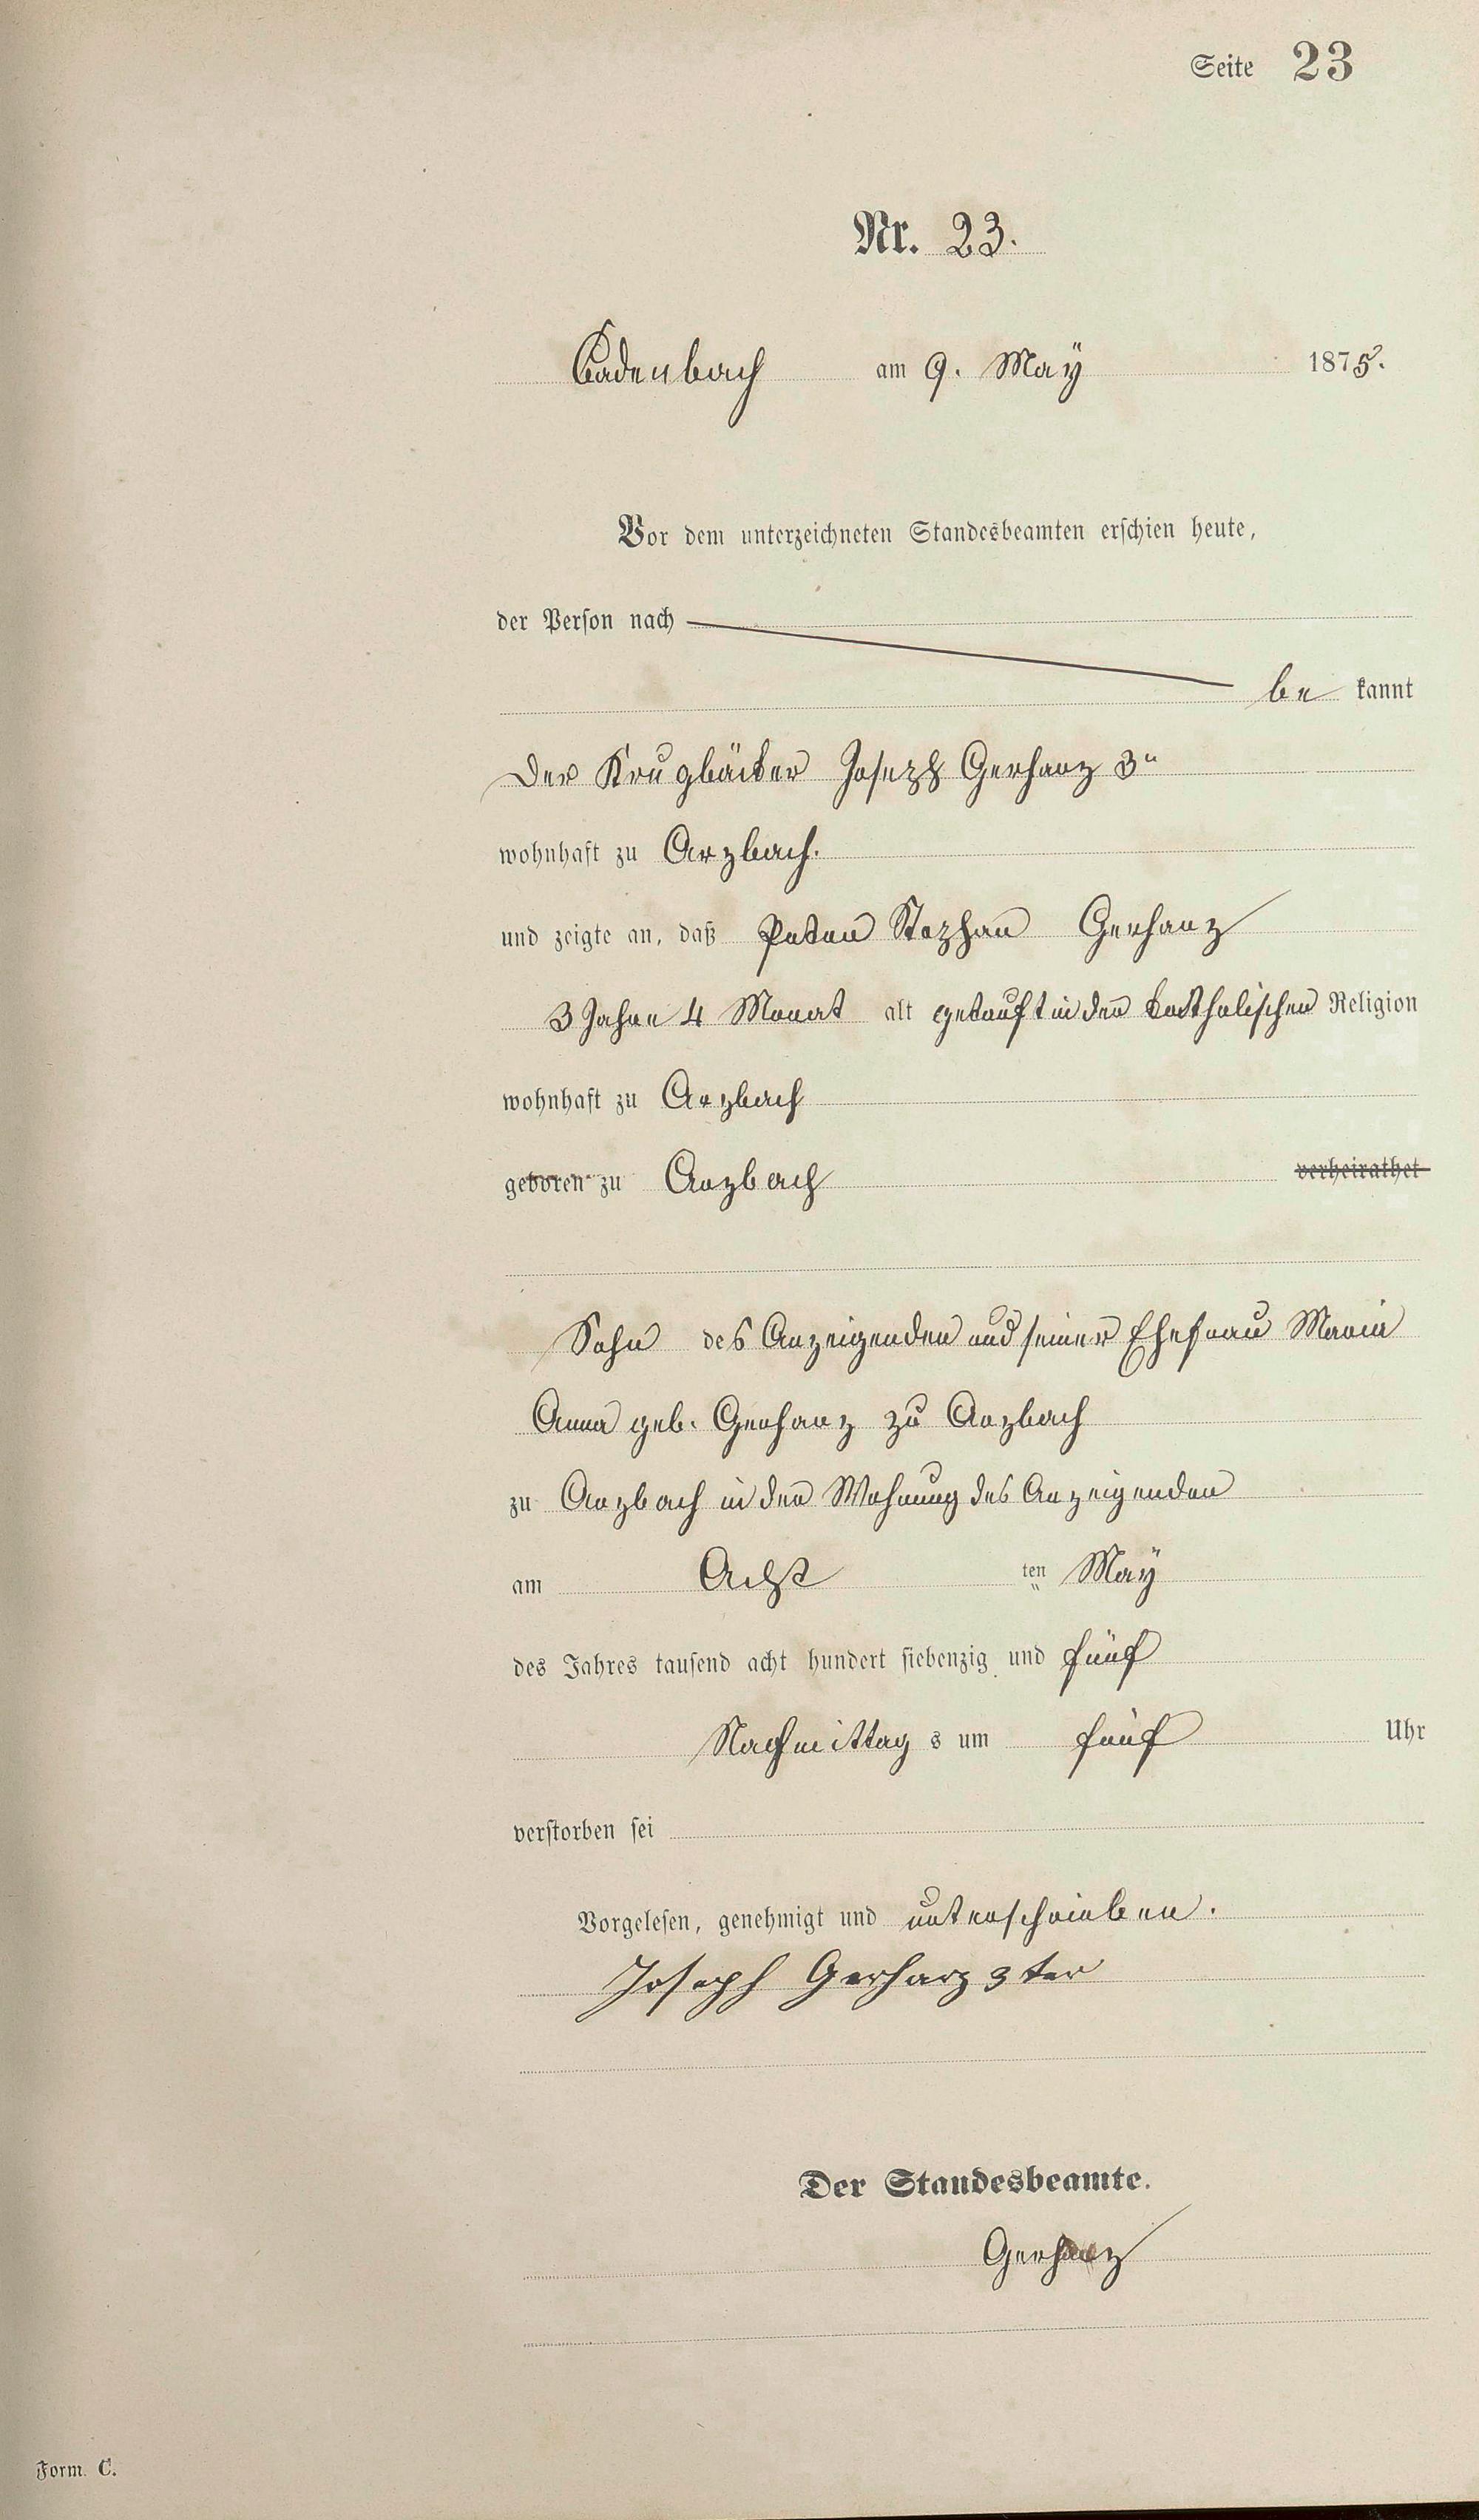 Seite 23
Nr. 23.
Cadenbach am 9. Maÿ 1875.
Vor dem unterzeichneten Standesbeamten erschien heute,
der Person nach
be kannt
Der Krugbäcker Joseph Gerharz 3r
wohnhaft zu Arzbach.
und zeigte an, daß Peter Stephan Gerharz
3 Jahre 4 Monat alt getauft in der katholischen Religion
wohnhaft zu Arzbach
geboren zu Arzbach verheirathet
Sohn des Anzeigenden und seiner Ehefrau Maria
Anna geb. Gerharz zu Arzbach
zu Arzbach in der Wohnung des Anzeigenden
am Acht ten Maÿ
des Jahres tausend acht hundert siebenzig und fünf
Nachmittag s um fünf Uhr
verstorben sei
Vorgelesen, genehmigt und unterschrieben.
Joseph Gerharz 3ter
Der Standesbeamte.
Gerharz
Form. C.